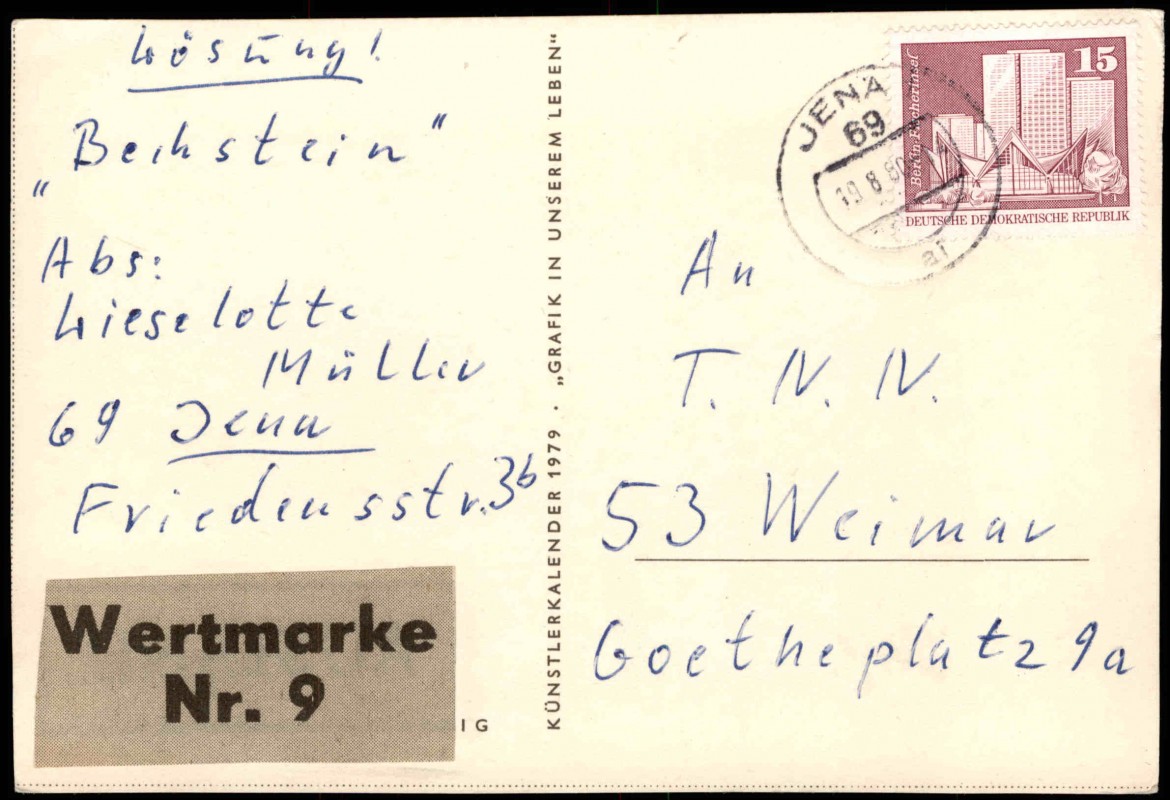 Lösung!
"Bechstein"
Abs:
Lieselotte
Müller
69 Jena
Friedensstr. 3b
Wertmarke
Nr. 9
IG
KÜNSTLERKALENDER 1979 · „GRAFIK IN UNSEREM LEBEN“
JENA
69
19.8.80
15
Berlin-Fischerinsel
DEUTSCHE DEMOKRATISCHE REPUBLIK
An
T. N. N.
53 Weimar
Goetheplatz 9a